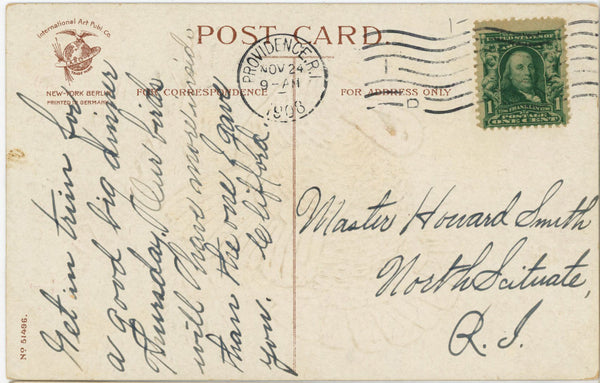 International Art Publ. Co.
NEW-YORK BERLIN
PRINTED IN GERMANY
POST CARD
FOR CORRESPONDENCE
FOR ADDRESS ONLY
PROVIDENCE, R.I.
NOV 24
9-AM
1908
D
1
1
POSTAGE
ONE CENT
Get in trim for
a good big dinner
Thursday. Our birds
will have more inside
than the one I gave
you. Clifford.
Master Howard Smith
North Scituate,
R. I.
No 51496.